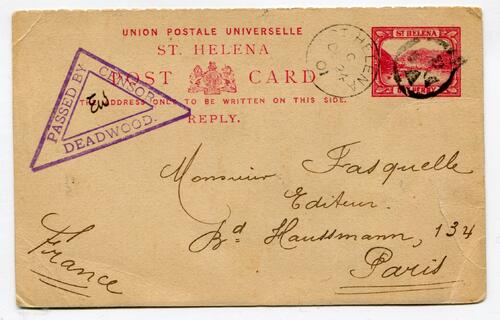 UNION POSTALE UNIVERSELLE
ST. HELENA
POST CARD
THE ADDRESS ONLY TO BE WRITTEN ON THIS SIDE.
REPLY.
ST HELENA
ST HELENA
01
PASSED BY
CENSOR
DEADWOOD.
EW
Monsieur Fasquelle
Editeur.
Bd Haussmann, 134
Paris
France